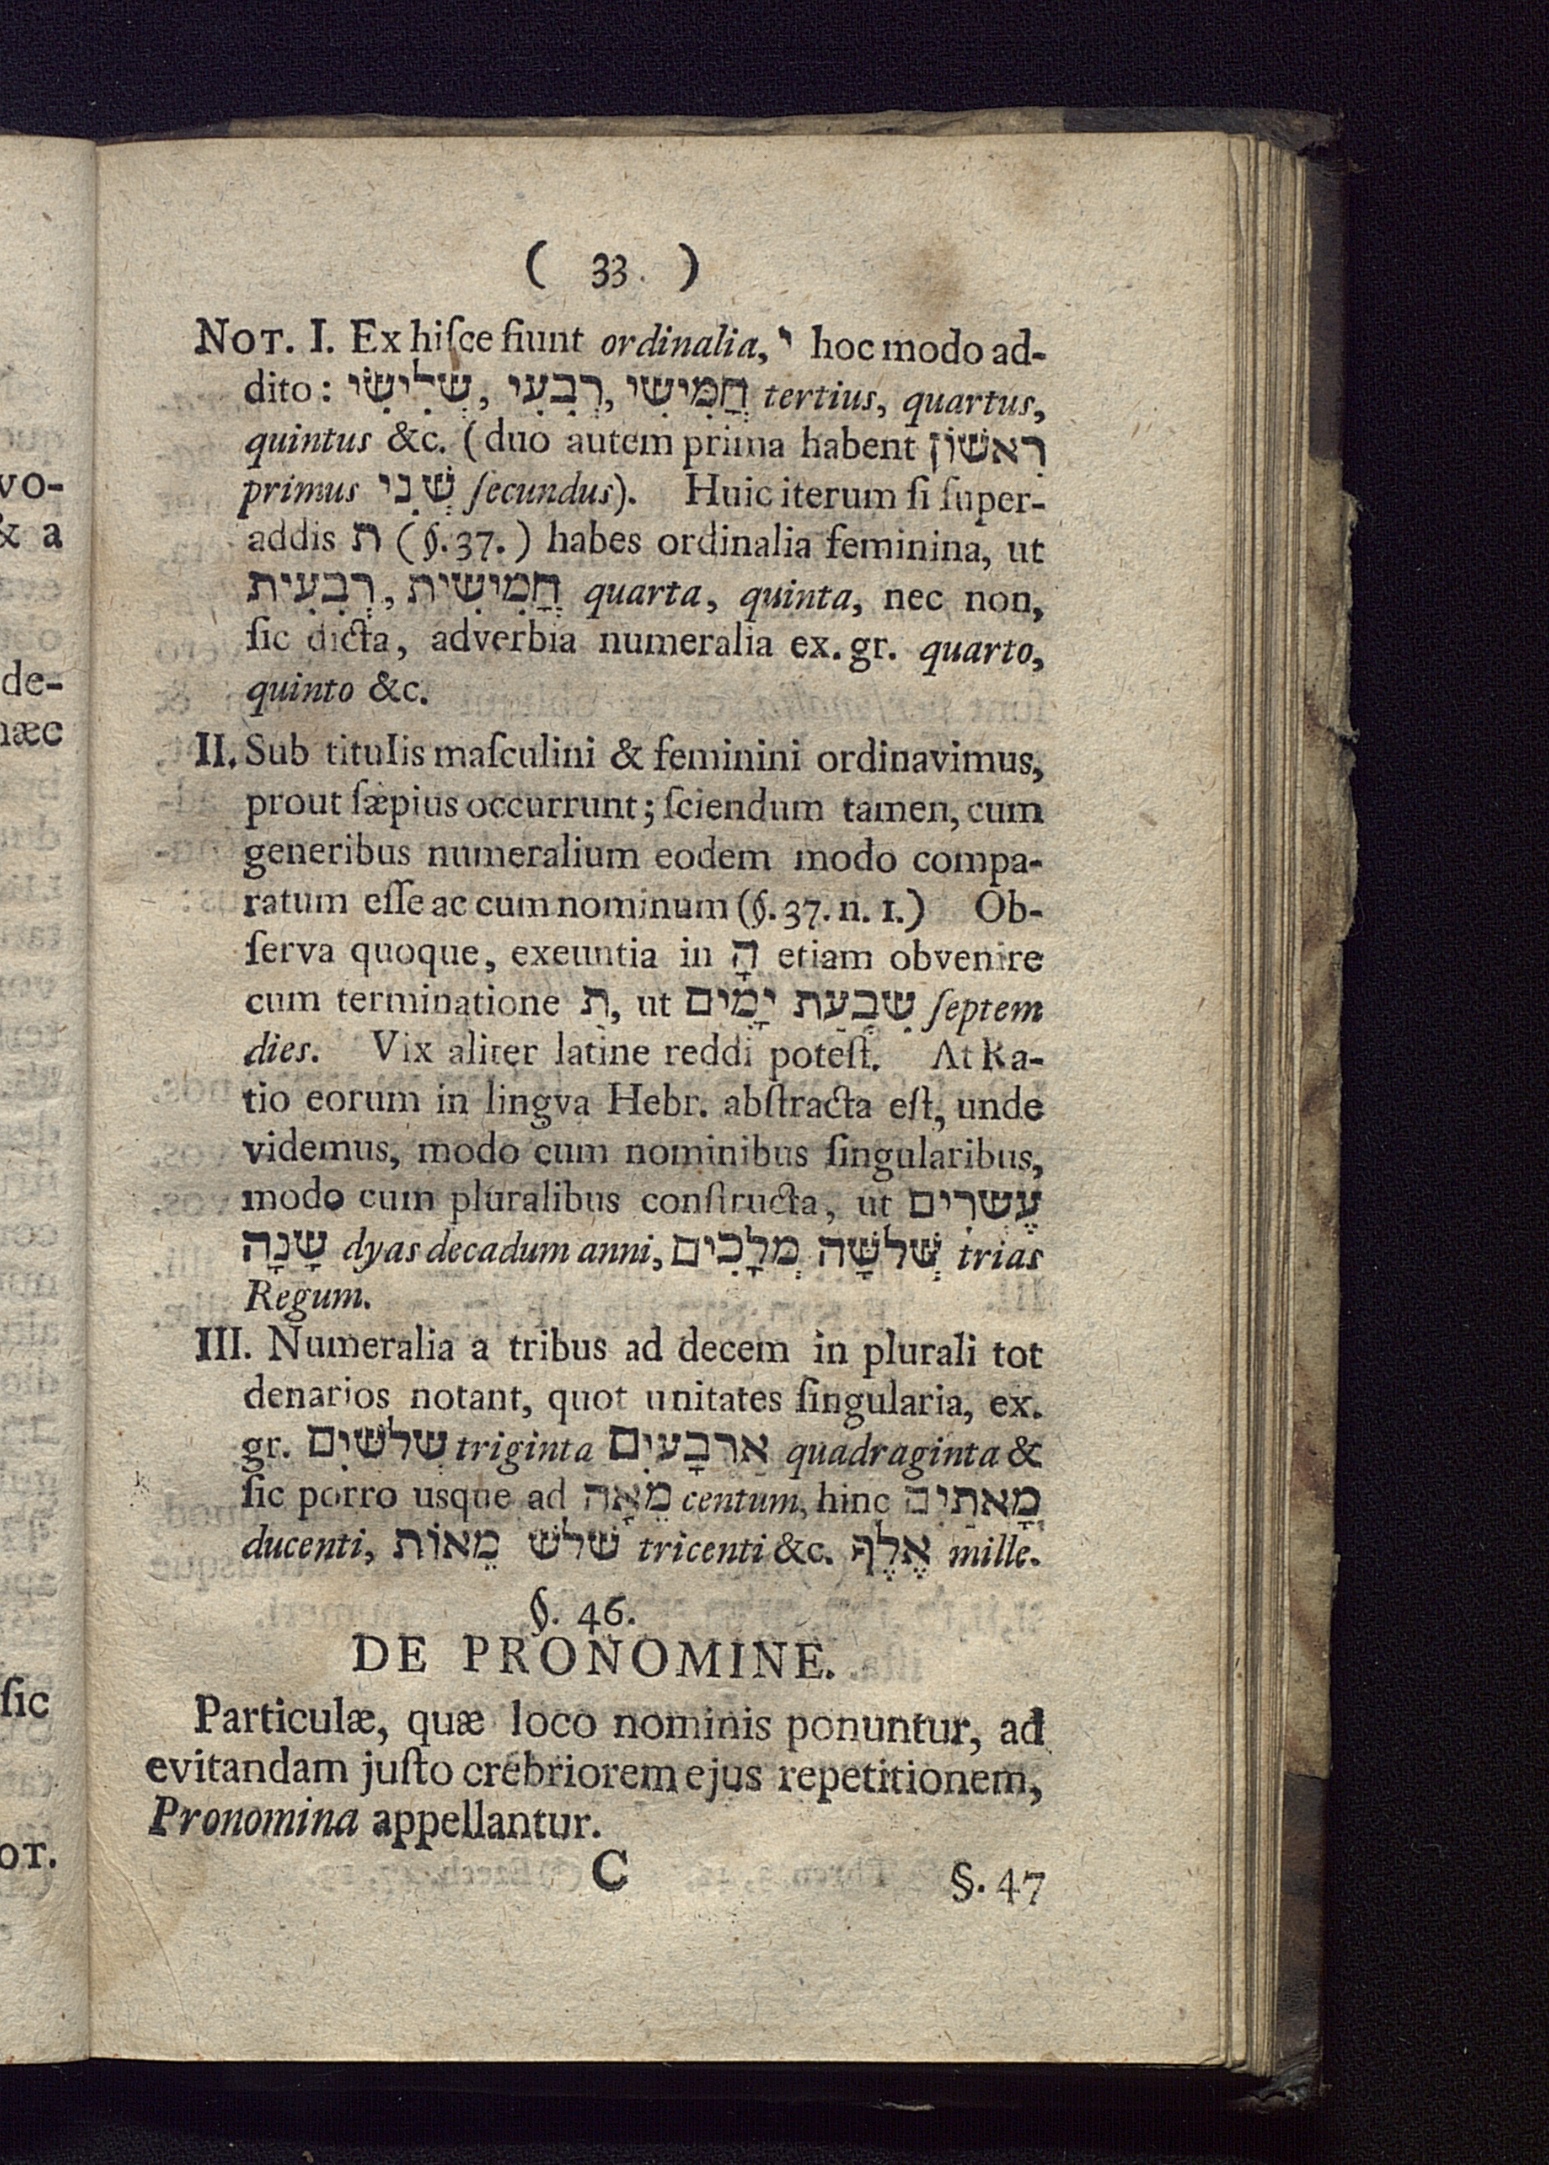 ( 33. )
NOT. I. Ex hiſce fiunt ordinalia, י hoc modo ad-
dito: שְׁלִישִׁי, רְבִעִי, חֲמִישִׁי tertius, quartus,
quintus &c. (duo autem prima habent רִאשׁוֹן
primus שְׁנִי ſecundus). Huic iterum ſi ſuper-
addis ת (§. 37.) habes ordinalia feminina, ut
רְבִעִית, חֲמִישִׁית quarta, quinta, nec non,
ſic dicta, adverbia numeralia ex. gr. quarto,
quinto &c.
II. Sub titulis maſculini & feminini ordinavimus,
prout ſæpius occurrunt; ſciendum tamen, cum
generibus numeralium eodem modo compa-
ratum eſſe ac cum nominum (§. 37. n. 1.) Ob-
ſerva quoque, exeuntia in הָ etiam obvenire
cum terminatione ת, ut שִׁבְעַת יָמִים ſeptem
dies. Vix aliter latine reddi poteſt. At Ra-
tio eorum in lingva Hebr. abſtracta eſt, unde
videmus, modo cum nominibus ſingularibus,
modo cum pluralibus conſtructa, ut עֶשְׂרִים
שָׁנָה dyas decadum anni, שְׁלשָׁה מְלָכִים trias
Regum.
III. Numeralia a tribus ad decem in plurali tot
denarios notant, quot unitates ſingularia, ex.
gr. שְׁלשִׁים triginta אַרְבָּעִים quadraginta &
ſic porro usque ad מֵאָה centum, hinc מָאתַיִם
ducenti, שְׁלשׁ מֵאוֹת tricenti &c. אֶלֶף mille.
§. 46.
DE PRONOMINE.
Particulæ, quæ loco nominis ponuntur, ad
evitandam juſto crebriorem ejus repetitionem,
Pronomina appellantur.
C §. 47
vo-
& a
de-
næc
ſic
OT.